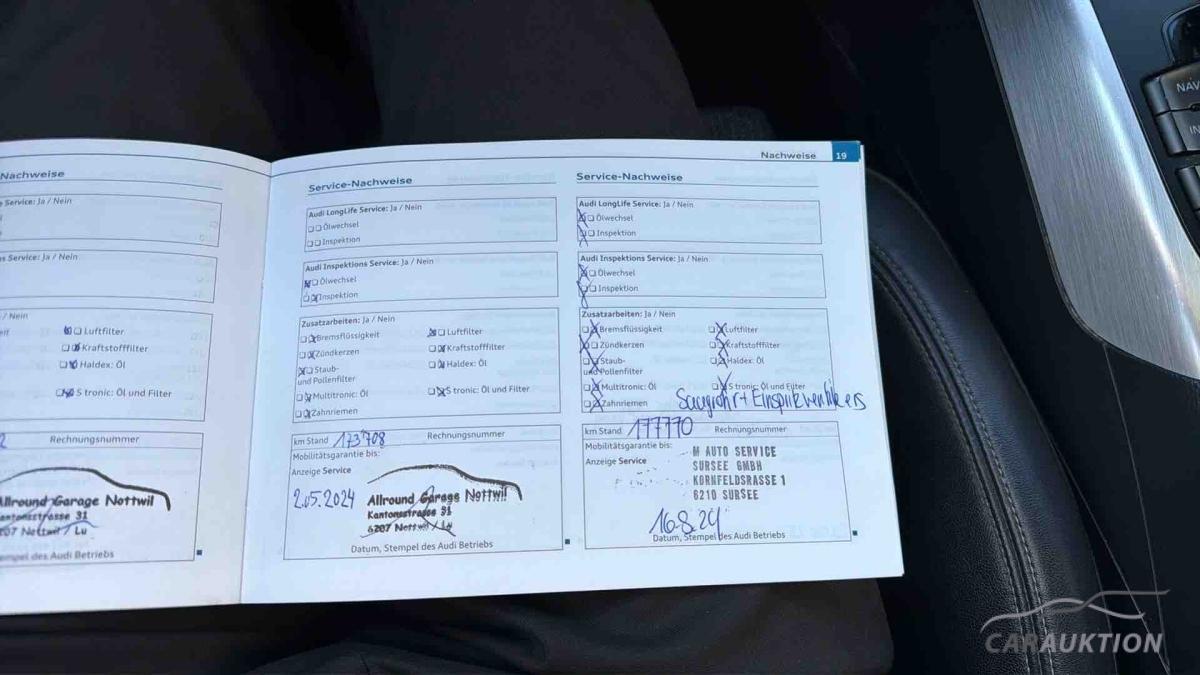 Nachweise
Service: Ja / Nein
Service: Ja / Nein
/ Nein
Luftfilter
Kraftstofffilter
Haldex: Öl
S tronic: Öl und Filter
2
Rechnungsnummer
Allround Garage Nottwil
Kantonsstrasse 31
6207 Nottwil / Lu
Stempel des Audi Betriebs
Service-Nachweise
Audi LongLife Service: Ja / Nein
Ölwechsel
Inspektion
Audi Inspektions Service: Ja / Nein
Ölwechsel
Inspektion
Zusatzarbeiten: Ja / Nein
Bremsflüssigkeit
Luftfilter
Zündkerzen
Kraftstofffilter
Staub-
und Pollenfilter
Haldex: Öl
Multitronic: Öl
S tronic: Öl und Filter
Zahnriemen
km Stand 173'708 Rechnungsnummer
Mobilitätsgarantie bis:
Anzeige Service
2.05.2024
Allround Garage Nottwil
Kantonsstrasse 31
6207 Nottwil / Lu
Datum, Stempel des Audi Betriebs
Nachweise 19
Service-Nachweise
Audi LongLife Service: Ja / Nein
Ölwechsel
Inspektion
Audi Inspektions Service: Ja / Nein
Ölwechsel
Inspektion
Zusatzarbeiten: Ja / Nein
Bremsflüssigkeit
Luftfilter
Zündkerzen
Kraftstofffilter
Staub-
und Pollenfilter
Haldex: Öl
Multitronic: Öl
S tronic: Öl und Filter
Zahnriemen
Saugrohr +
km Stand 177770 Rechnungsnummer
Mobilitätsgarantie bis:
Anzeige Service
M AUTO SERVICE
SURSEE GMBH
KORNFELDSRASSE 1
6210 SURSEE
16.8.24
Datum, Stempel des Audi Betriebs
NAV
IN
CARAUKTION